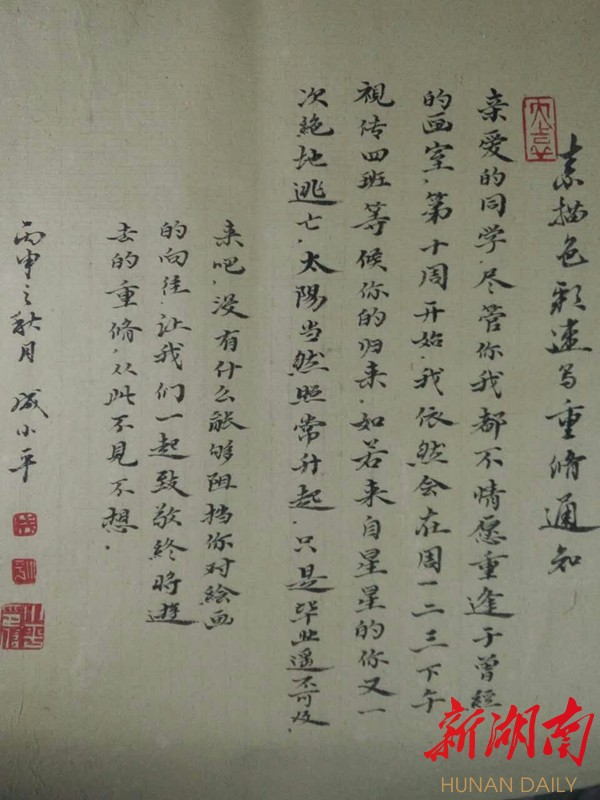 素描色彩速写重脩通知
亲爱的同学.尽管你我都不情愿重逢于曾经
的画室.第十周开始.我依然会在周一二三下午
視传四班等候你的归来.如若来自星星的你又一
次絶地逃亡.太陽当然照常升起.只是毕业遥不可及.
来吧.没有什么能够阻挡你对绘画
的向往.让我们一起致敬终将逝
去的重脩.从此不見不想.
丙申之秋月 成小平
新湖南
HUNAN DAILY